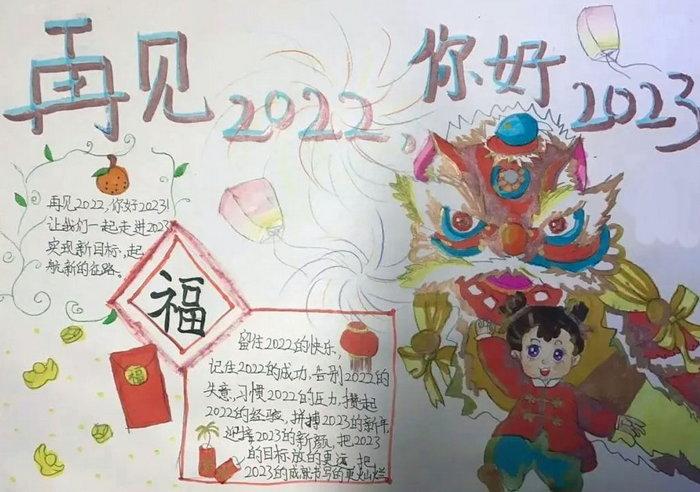 再见2022、你好2023
再见2022,你好2023!
让我们一起走进2023
实现新目标,起
航新的征路。
福
福
留住2022的快乐,
记住2022的成功,告别2022的
失意,习惯2022的压力,攒起
2022的经验,拼搏2023的新年,
迎接2023的新颜,把2023
的目标放的更远,把
2023的成就书写的更灿烂